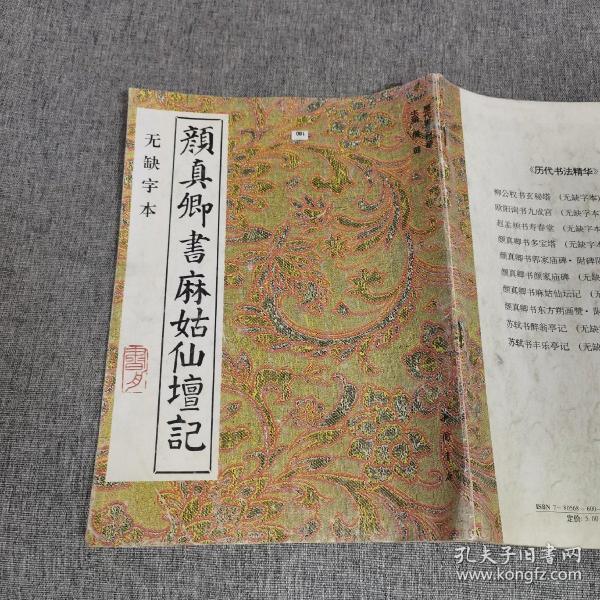 顔真卿書麻姑仙壇記
无缺字本
001
《历代书法精华》
柳公权书玄秘塔 （无缺字本）
欧阳询书九成宫 （无缺字本
赵孟頫书寿春堂 （无缺字本
颜真卿书多宝塔 （无缺字本
颜真卿书郭家庙碑·附碑阴
颜真卿书颜家庙碑 （无缺
颜真卿书麻姑仙坛记 （无
颜真卿书东方朔画赞·附
苏轼书醉翁亭记 （无缺
苏轼书丰乐亭记 （无缺
ISBN 7-80568-600-
定价: 5.00
孔夫子旧书网
www.kongfz.com